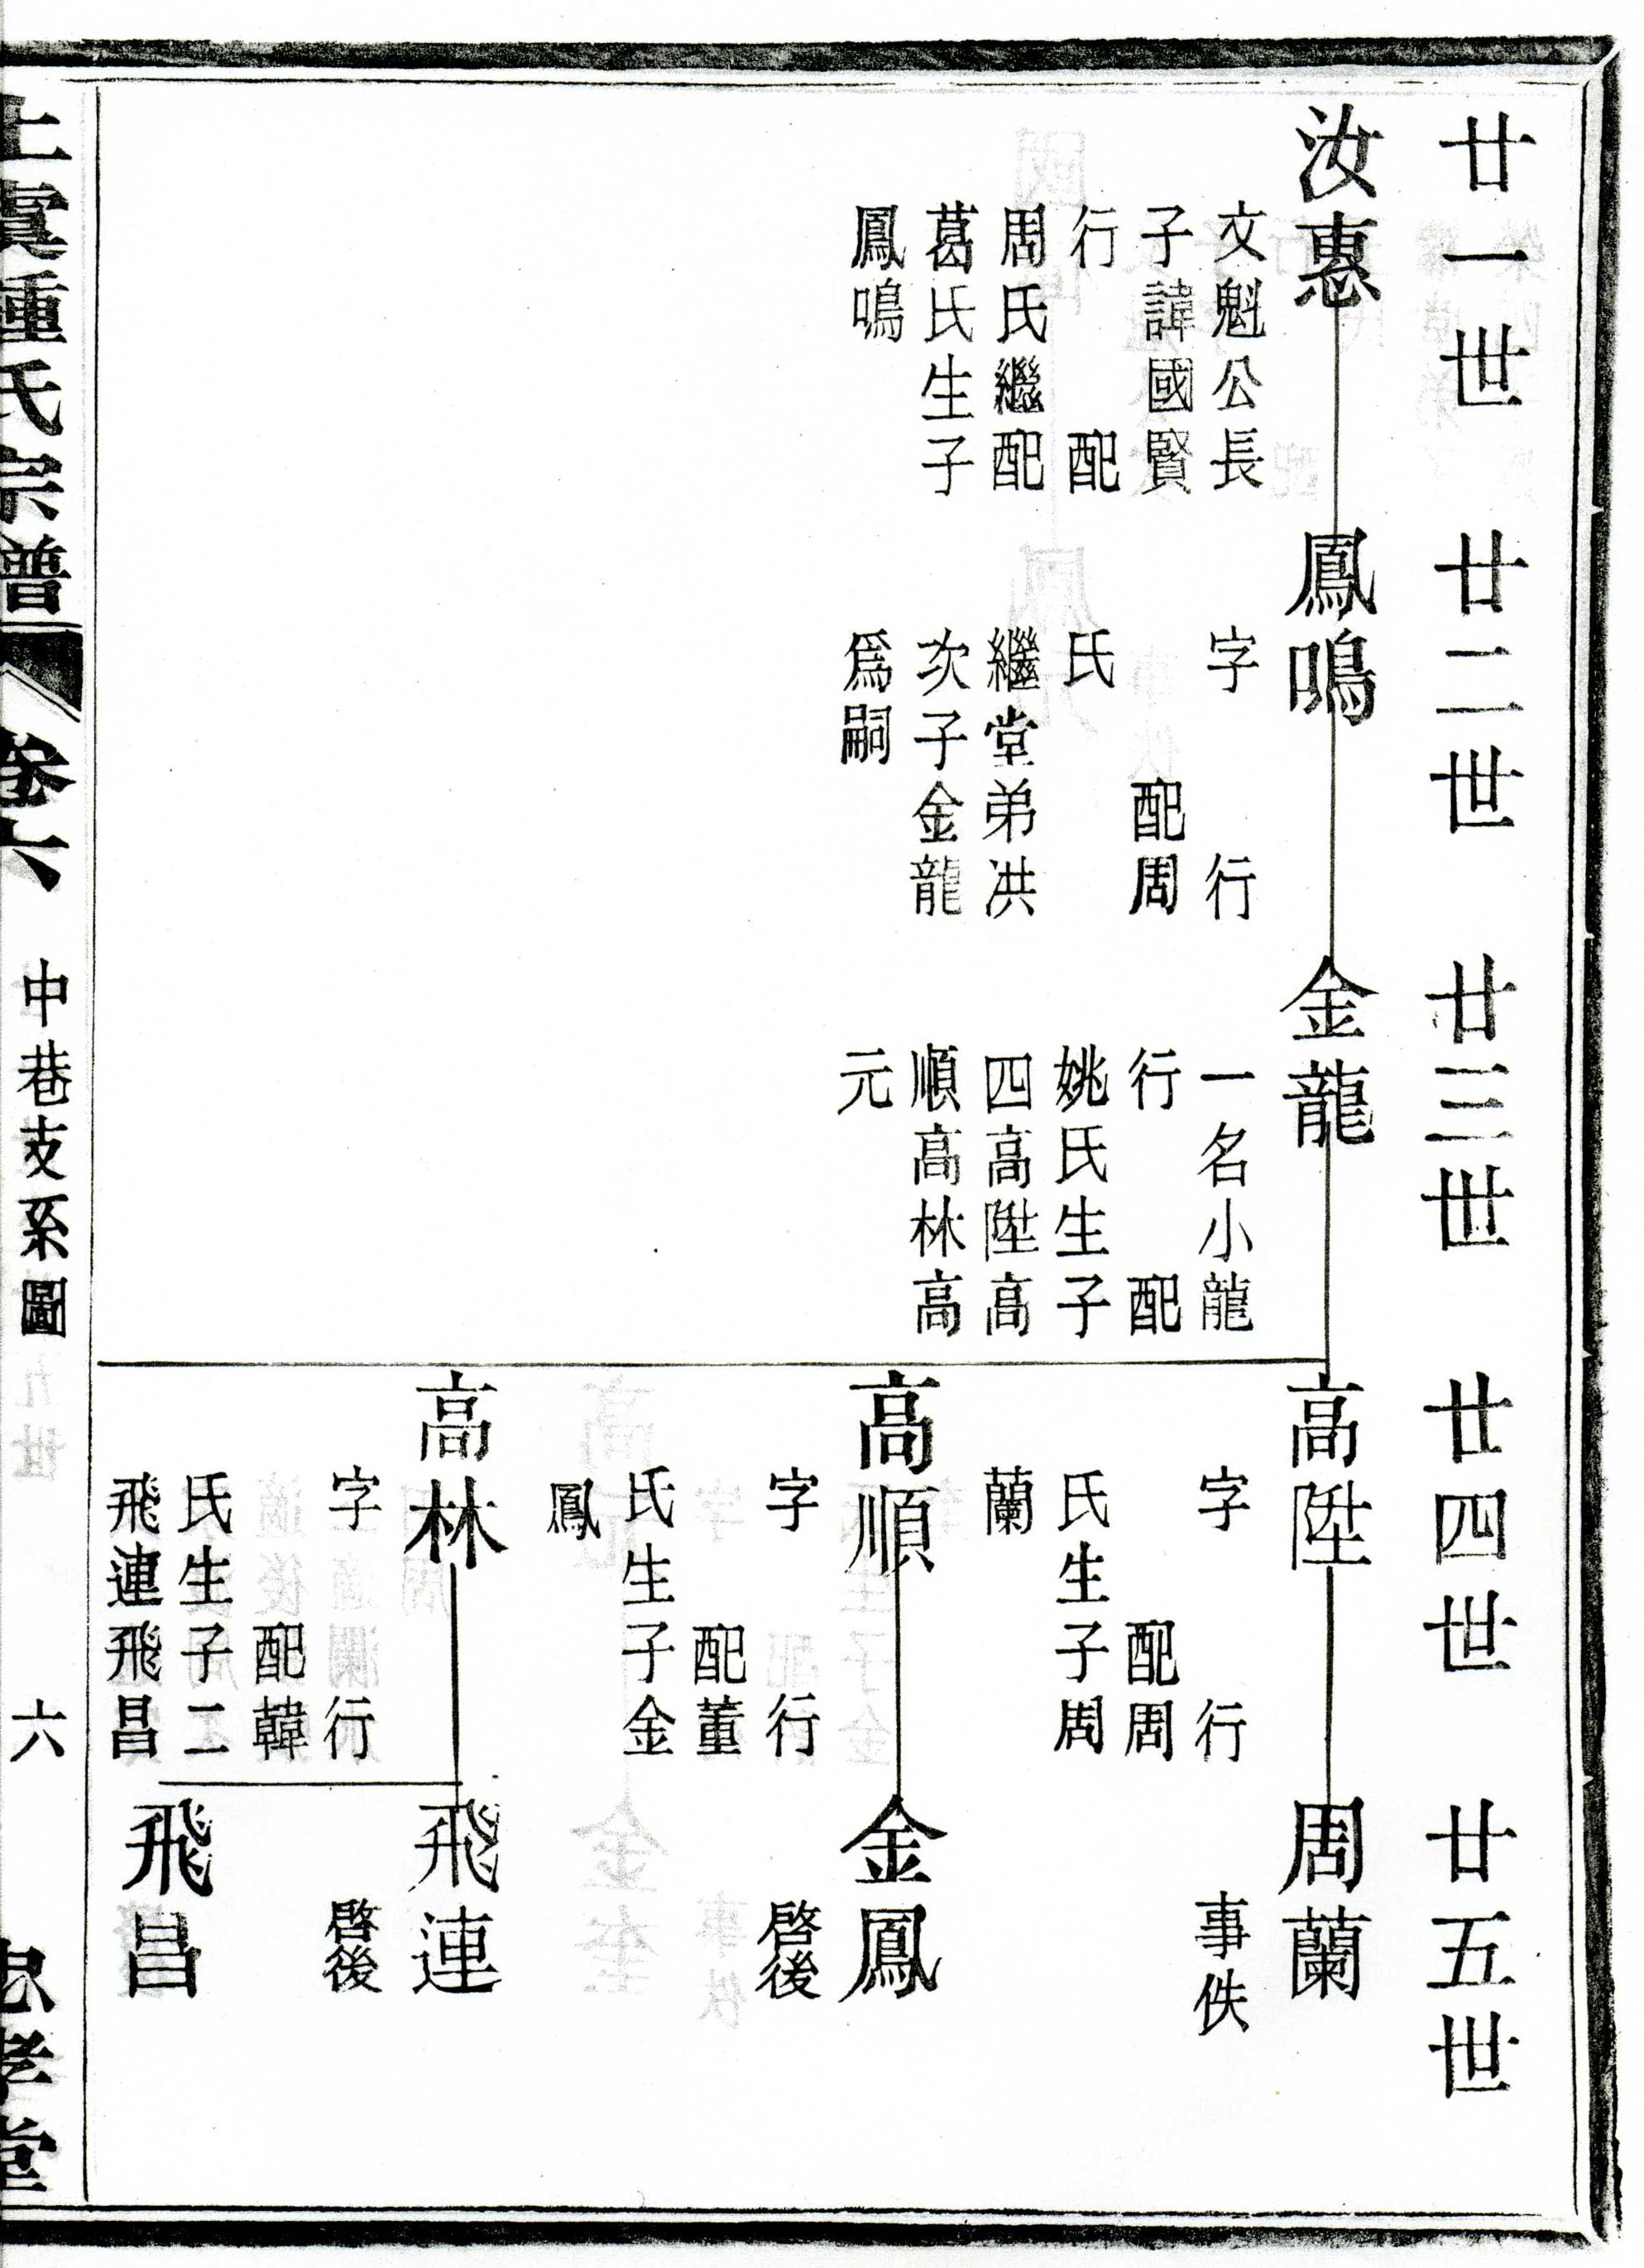 廿一世
廿二世
廿三世
廿四世
廿五世
汝惠
文魁公長
子諱國賢
行 配
周氏繼配
葛氏生子
鳳鳴
鳳鳴
字 行
配周
氏
繼堂弟洪
次子金龍
爲嗣
金龍
一名小龍
行 配
姚氏生子
四高陞高
順高林高
元
高陞
字 行
配周
氏生子周
蘭
周蘭
事佚
高順
字 行
配董
氏生子金
鳳
金鳳
啓後
高林
字 行
配韓
氏生子二
飛連飛昌
飛連
啓後
飛昌
上虞種氏宗譜 卷六 中巷支系圖 六 忠孝堂